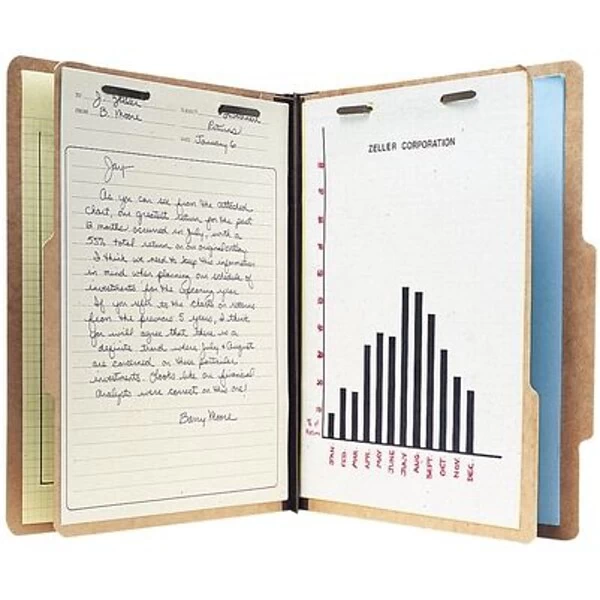 TO J. Zeller
FROM B. Moore
SUBJECT Investment
Returns
DATE January 6
Jay-
As you can see from the attached
chart, our greatest return for the past
12 months occurred in July, with a
55% total return on our original outlay.
I think we need to keep this information
in mind when planning our schedule of
investments for the upcoming year.
If you refer to the charts on returns
from the previous 5 years, I think
you will agree that there is a
definite trend where July & August
are concerned on these particular
investments. Looks like our financial
analysts were correct on this one!
Barry Moore
ZELLER CORPORATION
% of
Return
JAN. FEB. MAR. APR. MAY JUNE JULY AUG. SEPT. OCT. NOV. DEC.